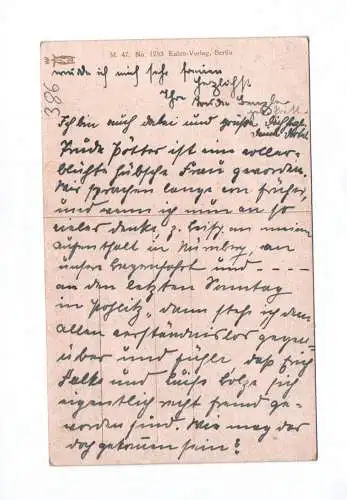 M. 47. No. 1253 Kaleo-Verlag, Berlin
386
würde ich mich sehr freuen
herzlichst
Ihre
Ich bin auch dabei und grüße
Trude Pötter ist eine voller-
blühte hübsche Frau geworden.
Wir sprachen lange von früher,
und wenn ich nun an so
vieles denke, z. beisp. an meinen
Aufenthalt in Nürnberg, an
unsere Bergfahrt und - - - -
an den letzten Sonntag
in Poslitz, dann steh ich dem
allen verständnislos gegen-
über und fühle, daß sich
Falke und Luise Bolze sich
eigentlich nicht fremd ge-
worden sind. Wie mag das
doch gekommen sein?